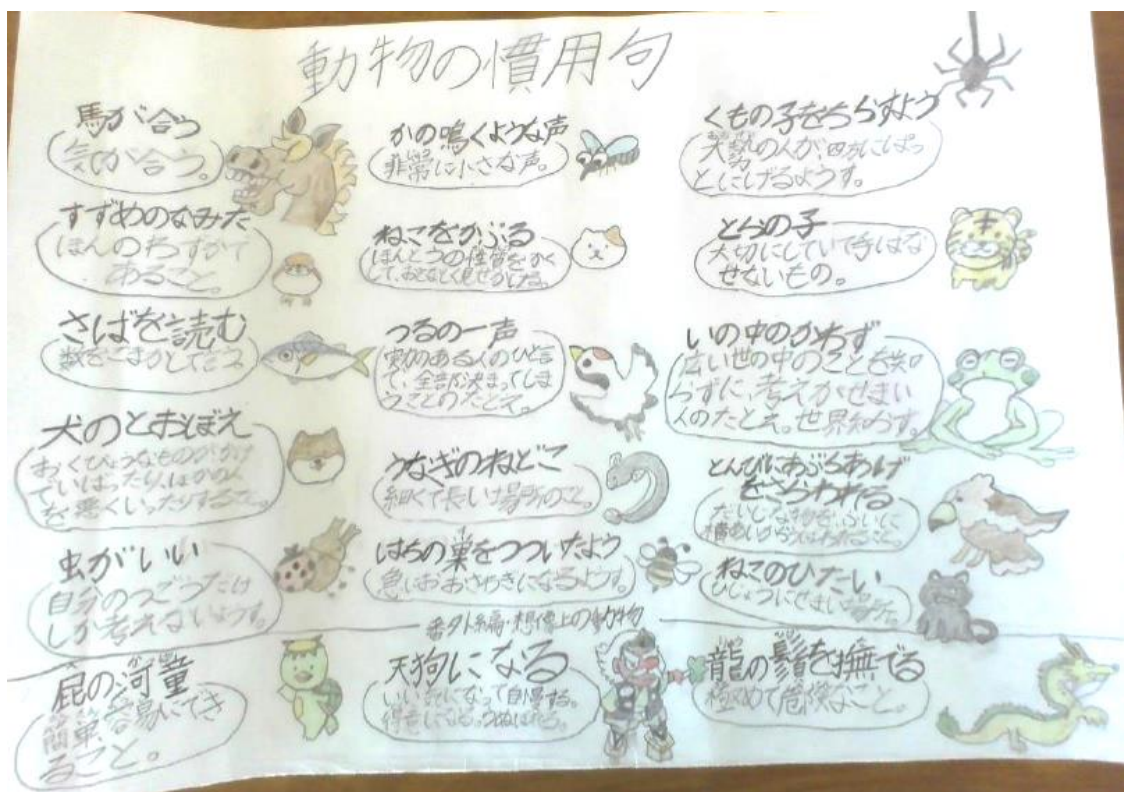 動物の慣用句
馬が合う
気が合う。
すずめのなみだ
ほんのわずかで
あること。
さばを読む
数をごまかして言う
犬のとおぼえ
おくびょうなものがかげ
でいばったり、ほかの人
を悪くいったりすること。
虫がいい
自分のつごうだけ
しか考えないようす。
かの鳴くような声
非常に小さな声。
ねこをかぶる
ほんとうの性質をかく
して、おとなしく見せかける。
つるの一声
実力のある人のひと言
で、全部が決まってしま
うことのたとえ。
うなぎのねどこ
細くて長い場所のこと。
はちの巣をつついたよう
急におおさわぎになるようす。
くもの子をちらすよう
大勢の人が、四方にぱっ
とにげるようす。
とらの子
大切にしていて手ばな
せないもの。
いの中のかわず
広い世の中のことを知
らずに、考えがせまい
人のたとえ。世界知らず。
とんびにあぶらあげ
をさらわれる
だいじな物を、ふいに
横あいからうばわれること。
ねこのひたい
ひじょうにせまい場所。
番外編・想像上の動物
屁の河童
簡単、容易にでき
ること。
天狗になる
いい気になって自慢する。
得意になる。うぬぼれる。
龍の鬚を撫でる
極めて危険なこと。